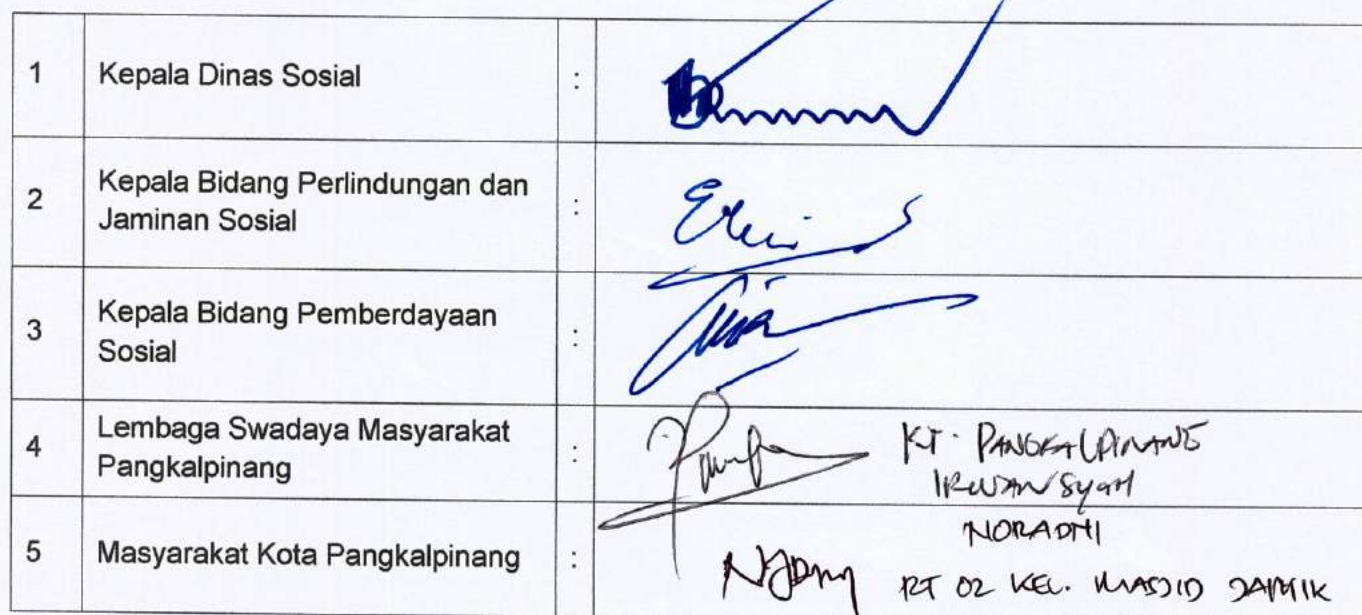 1 Kepala Dinas Sosial :
2 Kepala Bidang Perlindungan dan
Jaminan Sosial :
3 Kepala Bidang Pemberdayaan
Sosial :
4 Lembaga Swadaya Masyarakat
Pangkalpinang :
KT. PANGKALPINANG
IRWANSYAH
5 Masyarakat Kota Pangkalpinang :
NORADHI
RT 02 KEL. MASJID JAMIK